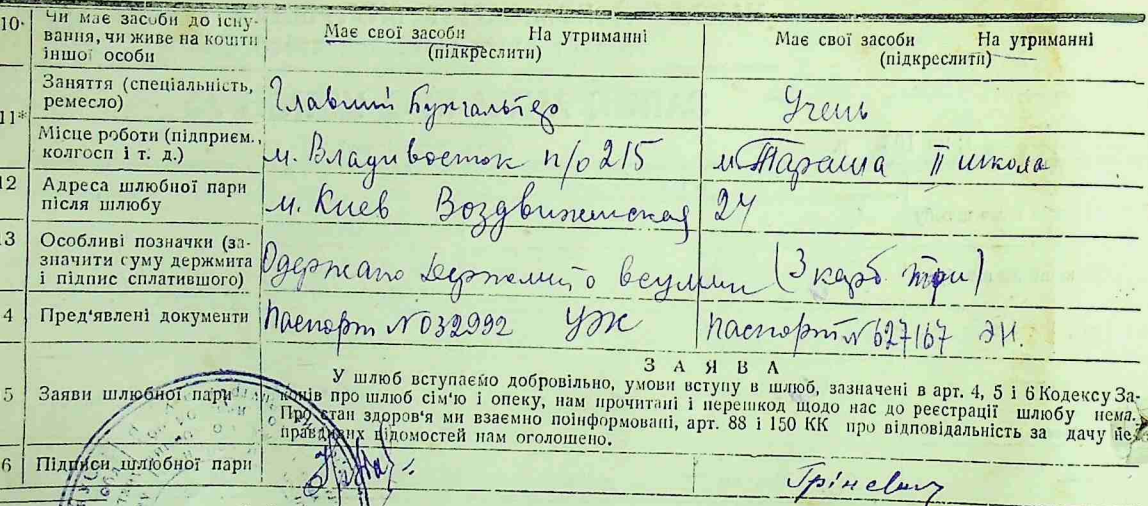 10· Чи має засоби до існу-
вання, чи живе на кошти
іншої особи
Має свої засоби На утриманні
(підкреслити)
Має свої засоби На утриманні
(підкреслити)
11* Заняття (спеціальність,
ремесло)
Главний Бухгальтер
Учень
Місце роботи (підприєм.,
колгосп і т. д.)
м. Владивосток п/о 215
м Тараща ІІ школа
12 Адреса шлюбної пари
після шлюбу
м. Киев Воздвиженская 24
3 Особливі позначки (за-
значити суму держмита
і підпис сплатившого)
Одержано держмито в сумми (3 карб три)
4 Пред'явлені документи
паспорт № 032992 УЖ
паспорт № 627167 ЭН.
5 Заяви шлюбної пари
ЗАЯВА
У шлюб вступаємо добровільно, умови вступу в шлюб, зазначені в арт. 4, 5 і 6 Кодексу За-
конів про шлюб сім'ю і опеку, нам прочитані і перешкод щодо нас до реєстрації шлюбу нема.
Про стан здоров'я ми взаємно поінформовані, арт. 88 і 150 КК про відповідальність за дачу не-
правдивих відомостей нам оголошено.
6 Підписи шлюбної пари
Гріневич